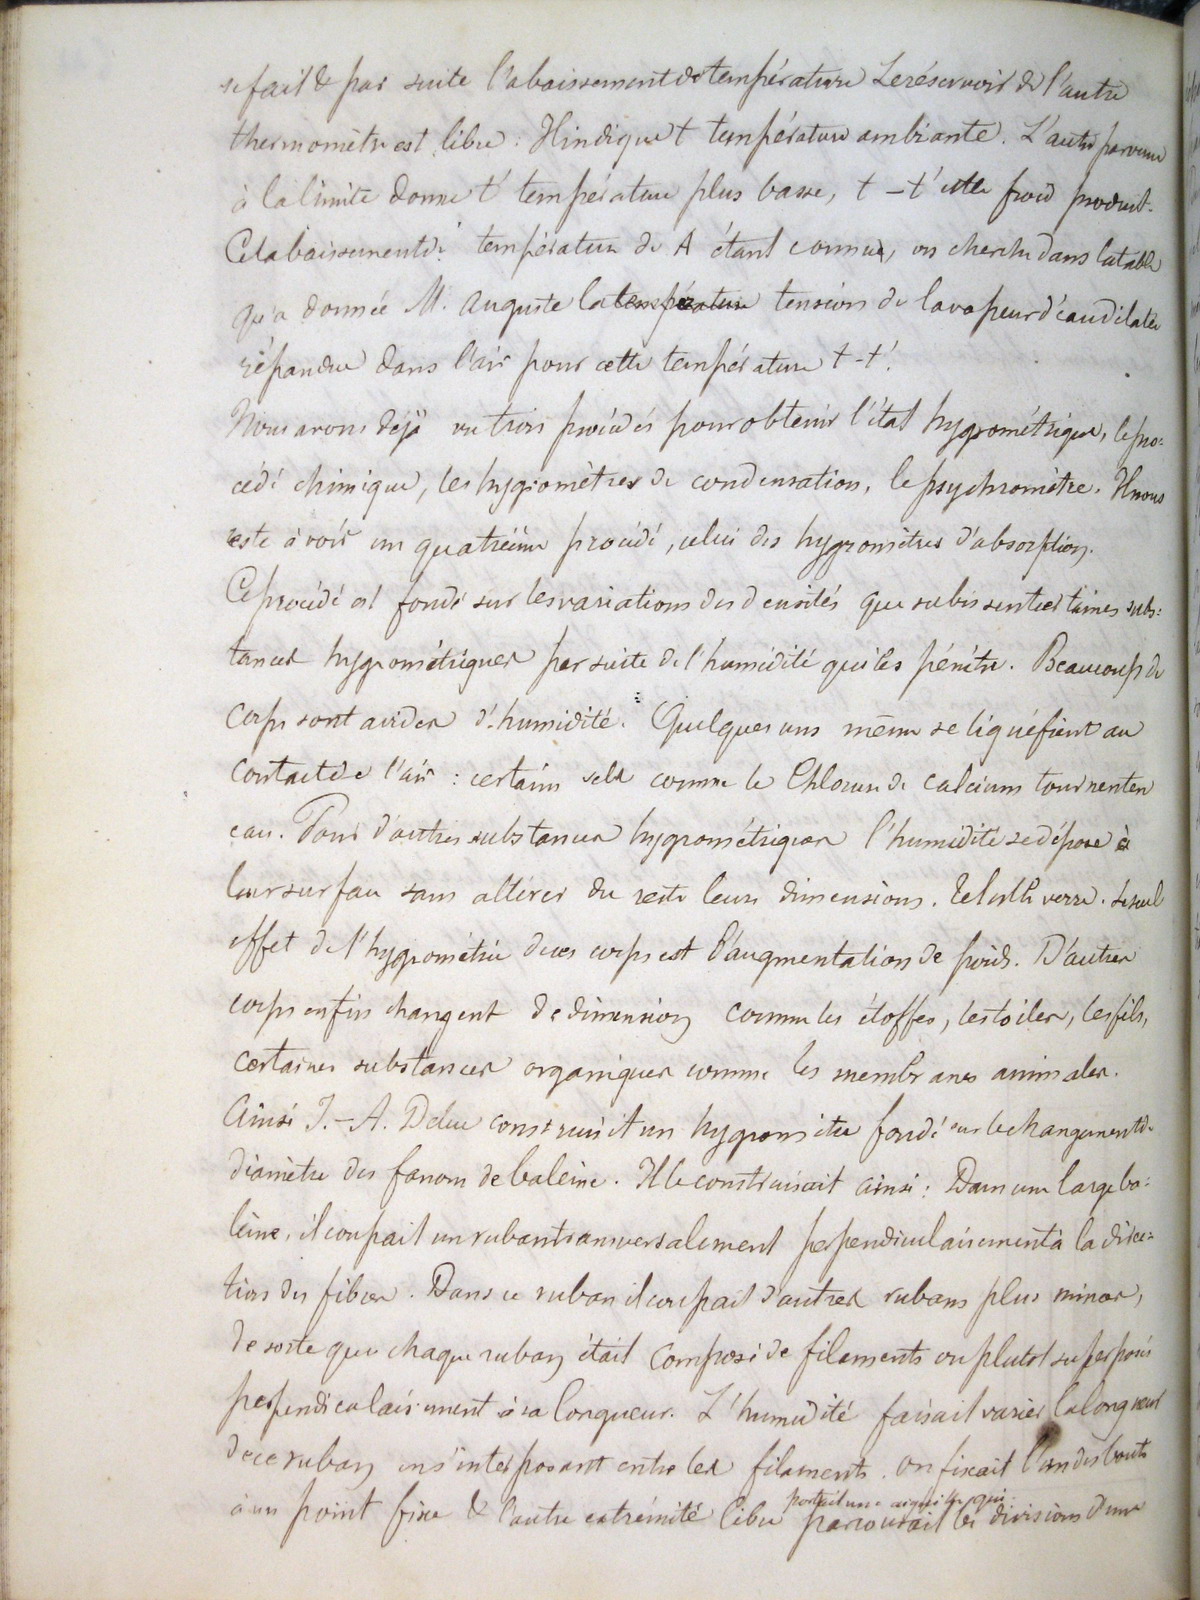 se fait & par suite l'abaissement de température Le réservoir de l'autre
thermomètre est libre : Il indique t température ambiante. L'autre parvenu
à la limite donne t' température plus basse, t – t' est le froid produit.
Cet abaissement de température de A étant connu, on cherche dans la table
qu'a donnée M. Auguste la température tension de la vapeur d'eau dilatée
répandue dans l'air pour cette température t-t'.
Nous avons déjà vu trois procédés pour obtenir l'état hygrométrique, le pro=
cédé chimique, les hygromètres de condensation, le psychromètre. Il nous
reste à voir un quatrième procédé, celui des hygromètres d'absorption.
Ce procédé est fondé sur les variations des densités que subissent certaines subs=
tances hygrométriques par suite de l'humidité qui les pénètre. Beaucoup de
corps sont avides d'humidité. Quelques uns même se liquéfient au
contact de l'air : certains sels comme le Chlorure de calcium tournent en
eau. Pour d'autres substances hygrométriques l'humidité se dépose à
leur surface sans altérer du reste leurs dimensions. Tel est le verre. Le seul
effet de l'hygrométrie de ces corps est l'augmentation de poids. D'autres
corps enfin changent de dimension comme les étoffes, les toiles, les fils,
certaines substances organiques comme les membranes animales.
Ainsi J.-A. Deluc construisit un hygromètre fondé sur le changement de
diamètre des fanons de baleine. Il le construisait ainsi : Dans une large ba=
leine, il coupait un ruban transversalement perpendiculairement à la direc=
tion des fibres. Dans ce ruban il coupait d'autres rubans plus minces,
de sorte que chaque ruban était composé de filaments ou plutot superposés
perpendiculairement à sa longueur. L'humidité faisait varier la longueur
de ce ruban en s'interposant entre les filaments. On fixait l'un des bouts
à un point fixe & l'autre extrémité libre portait une aiguille qui parcourait les divisions d'une